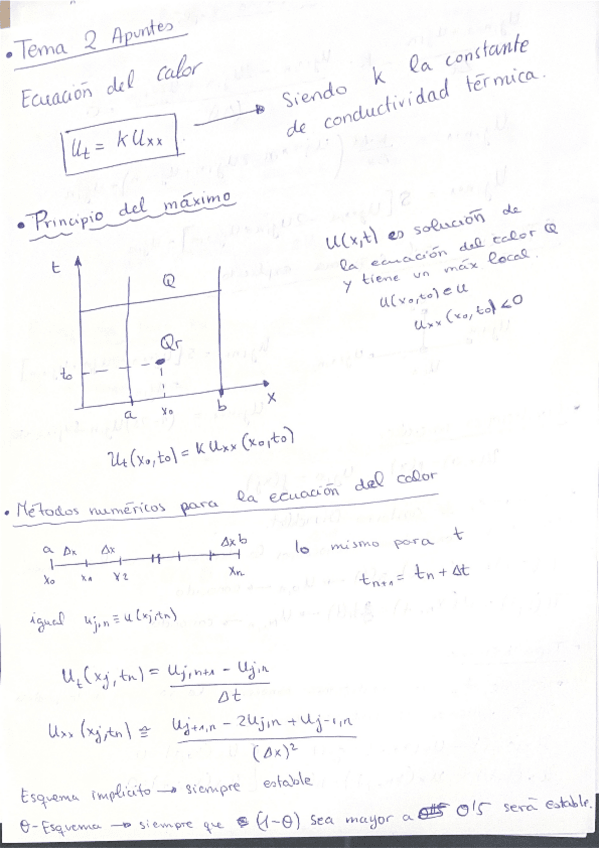 • Tema 2 Apuntes
Ecuación del calor
Ut = K Uxx → Siendo K la constante
de conductividad térmica.
• Principio del máximo
U(x,t) es solución de
la ecuación del calor Q
y tiene un máx local.
U(x0,t0) ∈ U
Uxx(x0,t0) < 0
t
Q
Qr
t0
a x0 b x
Ut(x0,t0) = K Uxx(x0,t0)
• Métodos numéricos para la ecuación del calor
a Δx Δx Δx b
x0 x1 x2 xn
lo mismo para t
tn+1 = tn + Δt
igual uj,n ≡ u(xj,tn)
Ut(xj,tn) = uj,n+1 - uj,n
Δt
Uxx(xj,tn) ≅ uj+1,n - 2uj,n + uj-1,n
(Δx)²
Esquema implícito → siempre estable
θ-Esquema → siempre que (1-θ) sea mayor a 0'5 será estable.